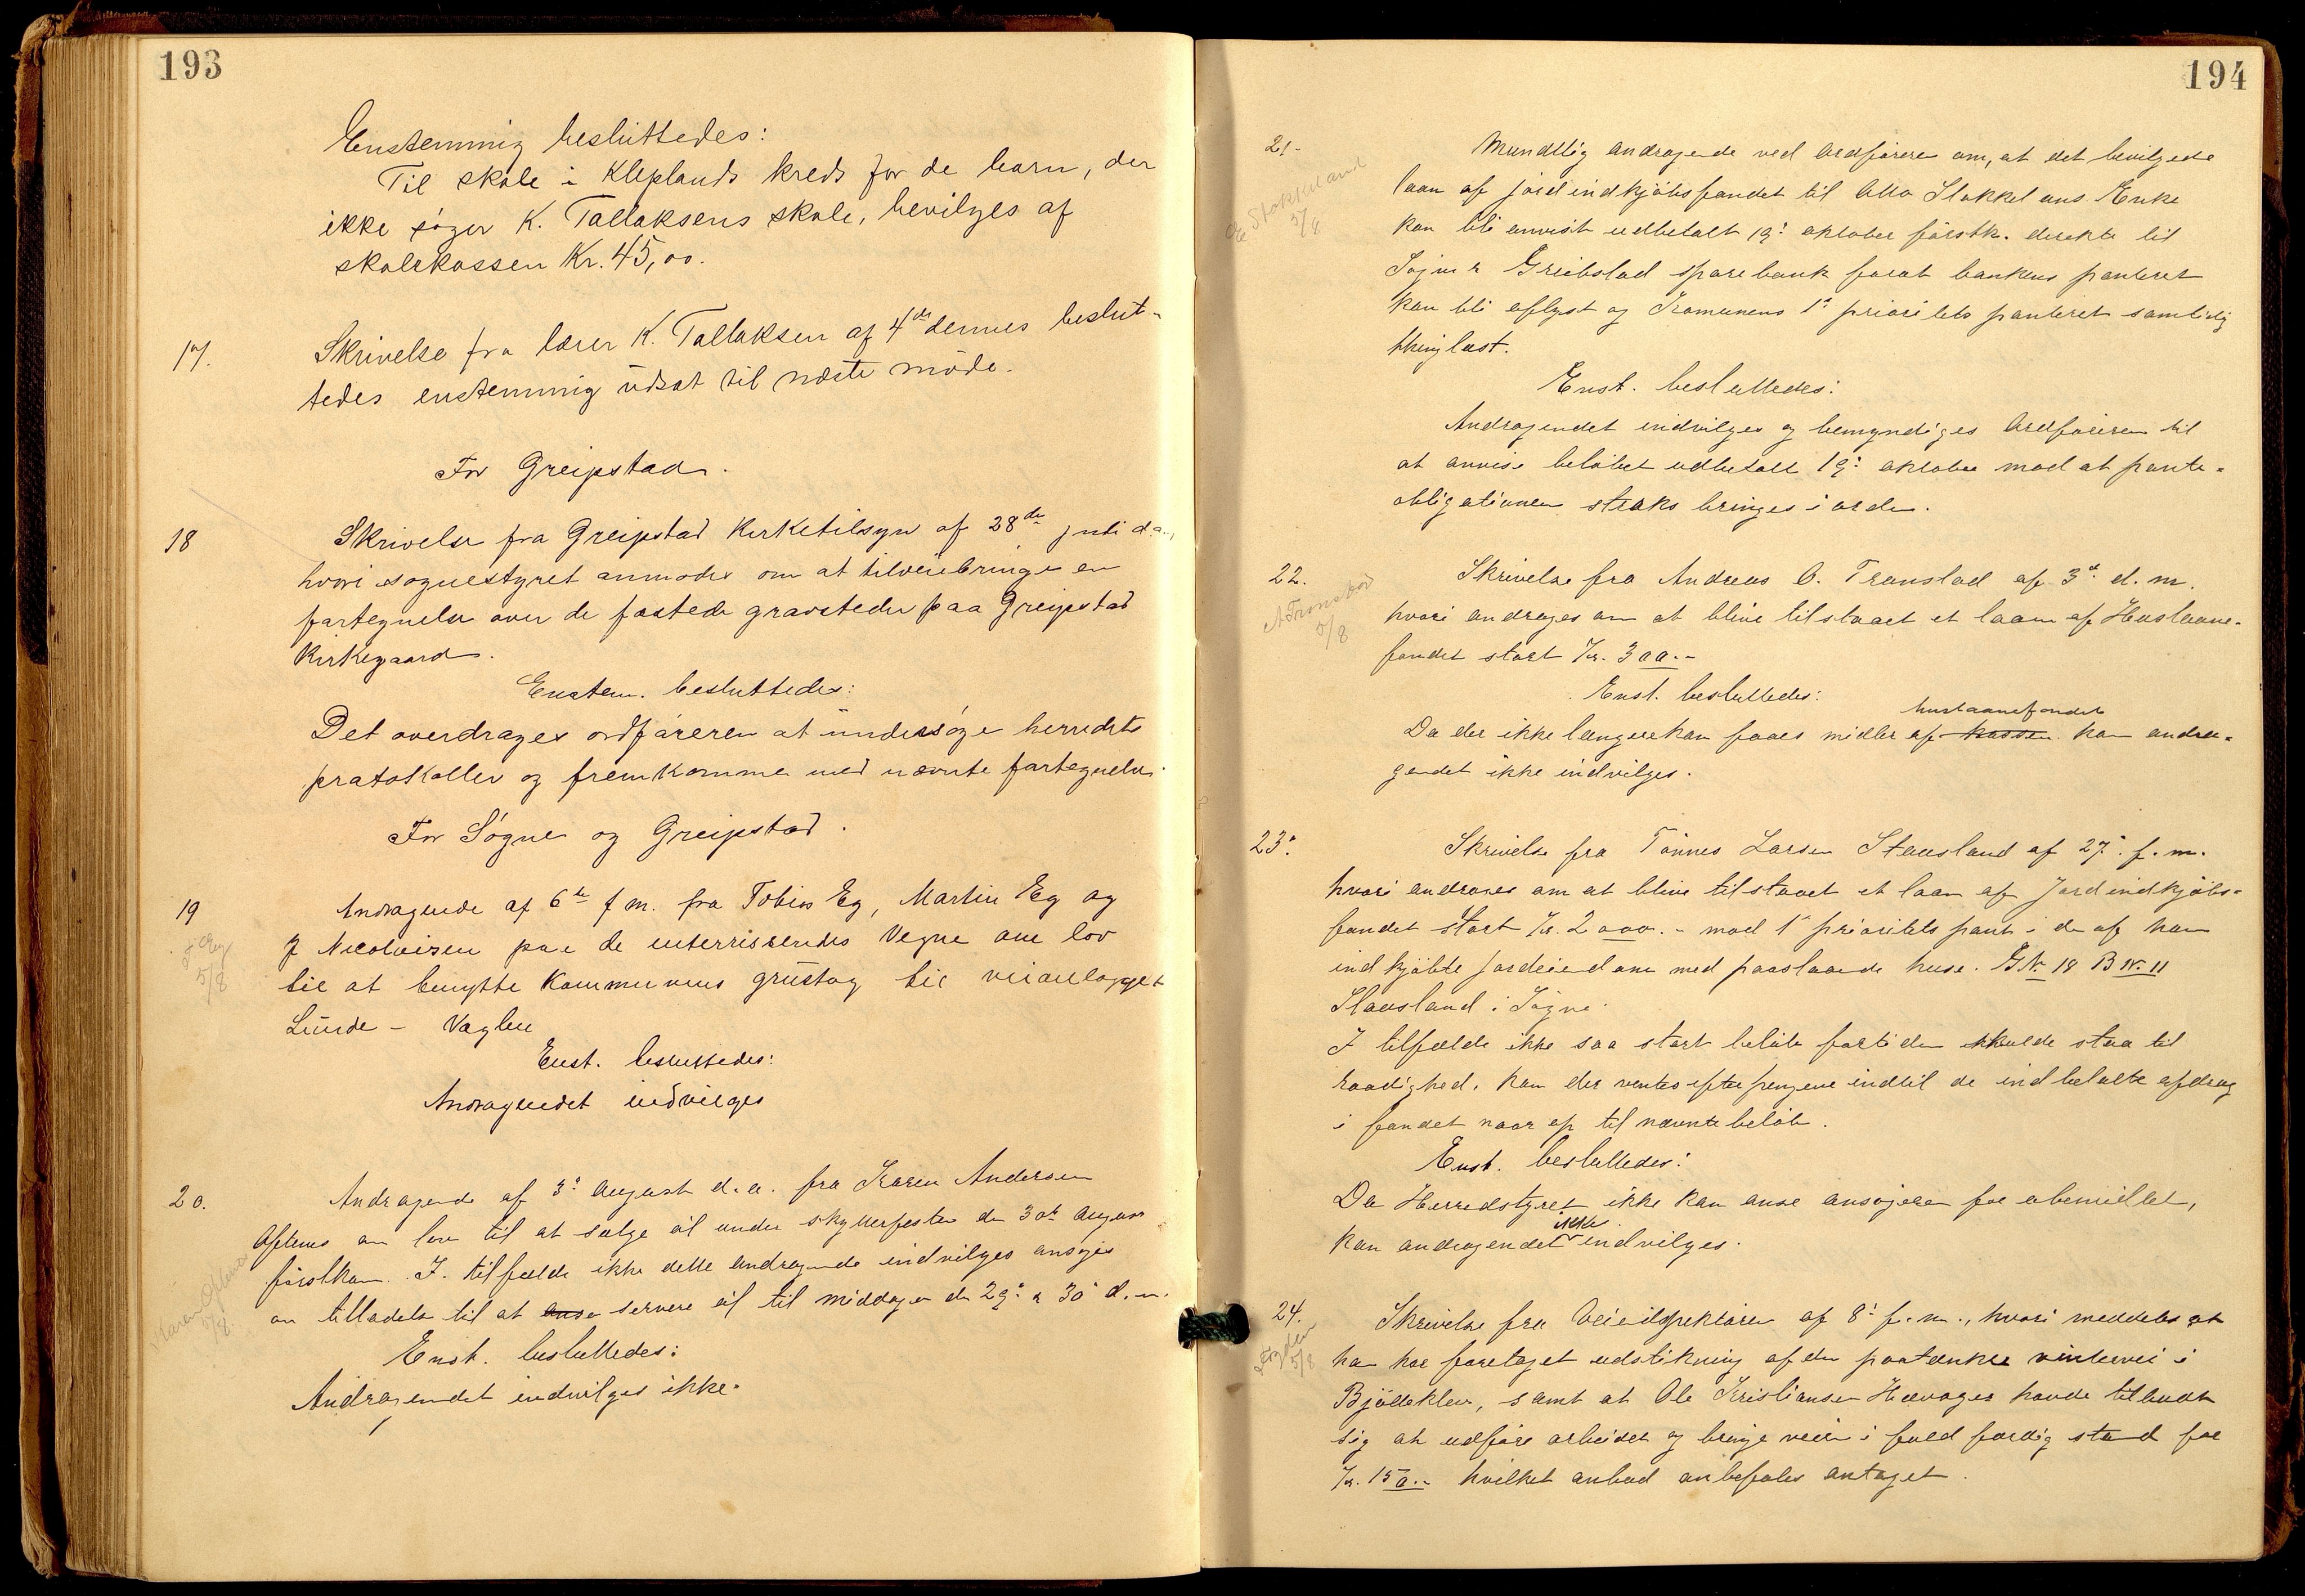 193
Enstemmig besluttedes:
Til skole i Kleplands kreds for de barn, der
ikke søger K. Tallaksens skole, bevilges af
skolekassen Kr. 45,00.
17. Skrivelse fra lærer K. Tallaksen af 4de dennes beslut-
tedes enstemmig udsat til næste møde.
For Greipstad.
18 Skrivelse fra Greipstad Kirketilsyn af 28de juli d.a.,
hvori sognestyret anmodes om at tilveiebringe en
fortegnelse over de fæstede gravsteder paa Greipstad
Kirkegaard.
Enstem. besluttedes:
Det overdrages ordføreren at undersøge herredets
protokoller og fremkomme med nævnte fortegnelse.
For Søgne og Greipstad.
19 Andragende af 6te f m. fra Tobias Eg, Martin Eg og
J Nicolaisen paa de interesseredes Vegne om lov
til at benytte Kommunens grustag til veianlægget
Lunde - Vaglen
T Eg
5/8
Enst. besluttedes:
Andragendet indvilges
20. Andragende af 3' August d.a. fra Karen Andersen
Aftenes om lov til at sælge øl under skytterfesten den 30te August
førstkom. I tilfælde ikke dette andragende indvilges ansøges
om tilladelse til at servere øl til middagen den 29' & 30' d.m.
Karen
5/8
Enst. besluttedes:
Andragendet indvilges ikke.
194
21. Mundtlig andragende ved Ordføreren om, at det bevilgede
laan af jordindkjøbsfondet til Otto Stokkelans Enke
kan bli anvist udbetalt 19' oktober førstk. direkte til
Søgne & Greibstad sparebank forat bankens panteret
kan bli aflyst og Komunens 1' prioritets panteret samtidig
thinglæst.
Stokkeland
5/8
Enst. besluttedes:
Andragendet indvilges og bemyndiges Ordføreren til
at anvise beløbet udbetalt 19' oktober mod at pante-
obligationen straks bringes i orden.
22. Skrivelse fra Andreas O. Tronstad af 3' d.m.
hvori andrages om at blive tilstaaet et laan af Huslaane-
fondet stort Kr. 300.-
A Tronstad
5/8
Enst. besluttedes:
huslaanefondet
Da der ikke længere kan faaes midler af kassen kan andra-
gendet ikke indvilges.
23' Skrivelse fra Tønnes Larsen Stausland af 27' f.m.
hvori andrages om at blive tilstaaet et laan af Jordindkjøbs-
fondet stort Kr. 2000.- mod 1' prioritets pant i de af ham
indkjøbte jordeiendom med paastaaende huse. G.Nr. 18 B.Nr. 11
Stausland i Søgne.
I tilfælde ikke saa stort beløb fortiden skulde staa til
raadighed, kan der ventes efter pengene indtil de indbetalte afdrag
i fondet naar op til nævnte beløb.
Enst. besluttedes:
Da Herredstyret ikke kan anse ansøgeren for ubemidlet,
kan andragendet ikke indvilges.
24. Skrivelse fra Veiinspektøren af 8' f.m., hvori meddeles at
han har foretaget udstikning af den paatænkte vintervei i
Bjelleklev, samt at Ole Kristiansen Høvaages havde tilbudt
sig at udføre arbeidet og bringe veien i fuld færdig stand for
Kr. 150.- hvilket anbud anbefales antaget.
5/8